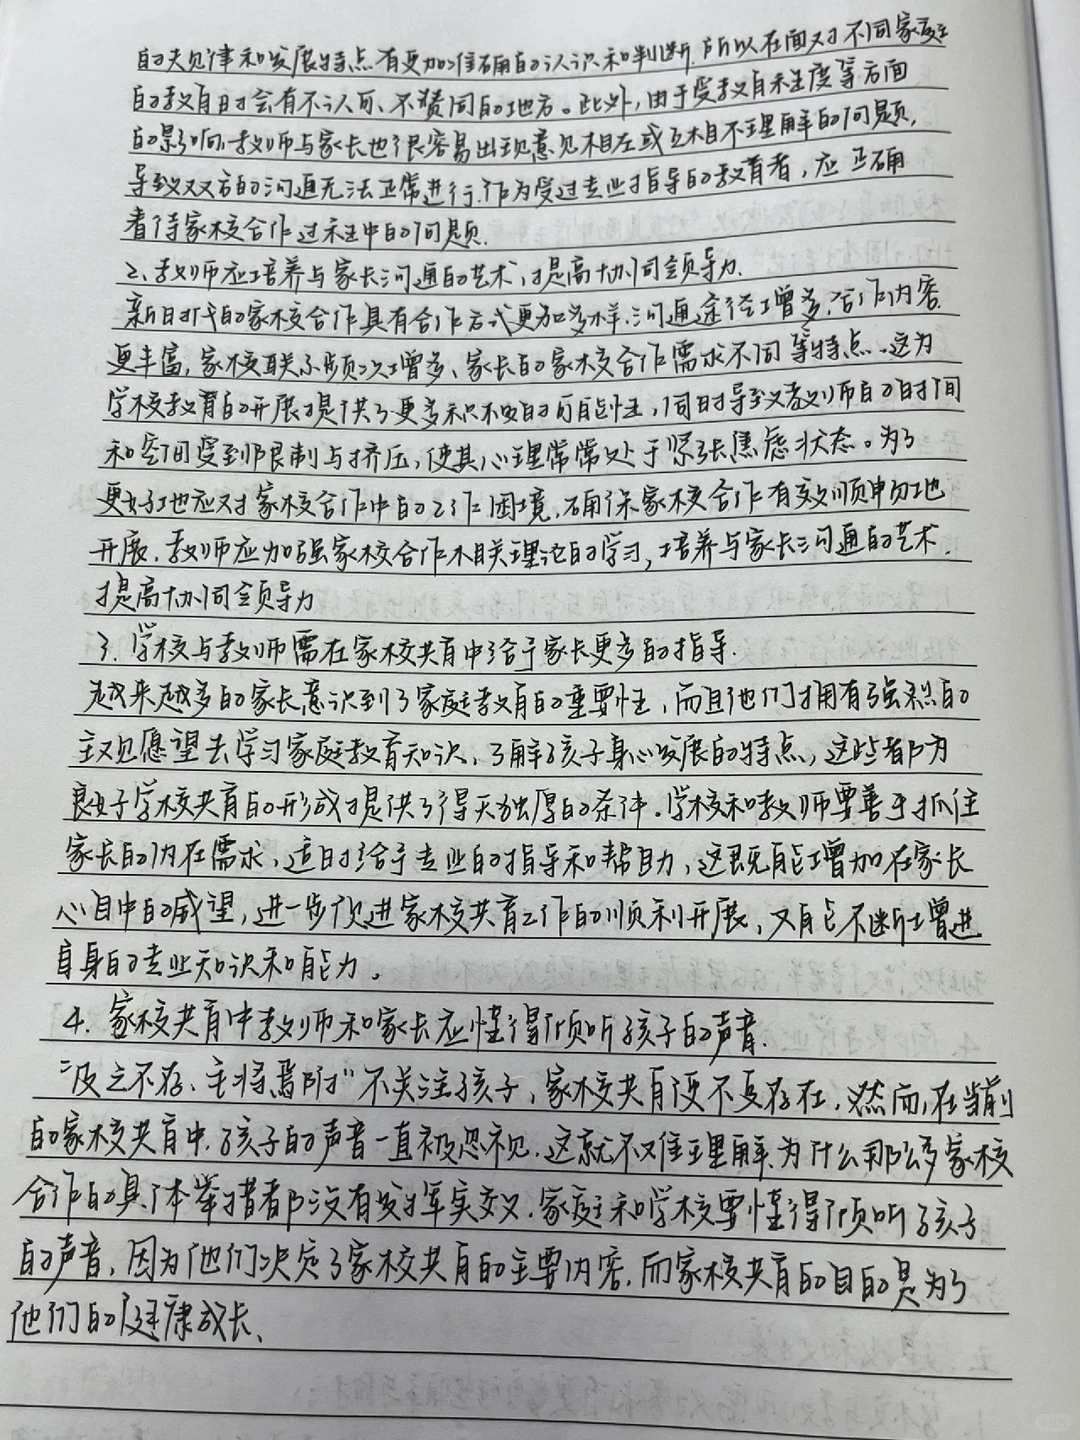 的夫见律和发展特点有更加准确的认识和判断.所以在面对不同家庭
的教育时会有不认可、不赞同的地方。此外,由于受教育程度等方面
的影响,教师与家长也很容易出现意见相左或互相不理解的问题,
导致双方的沟通无法正常进行.作为受过专业指导的教育者,应正确
看待家校合作过程中的问题.
2、教师应培养与家长沟通的艺术,提高协同领导力.
新时代的家校合作具有合作方式更加多样、沟通途径增多、合作内容
更丰富,家校联系频次增多、家长的家校合作需求不同等特点.这为
学校教育的开展提供了更多积极的可能性,同时导致教师的时间
和空间受到限制与挤压,使其心理常常处于紧张焦虑状态。为了
更好地应对家校合作中的工作困境,确保家校合作有效顺申勿地
开展.教师应加强家校合作相关理论的学习,培养与家长沟通的艺术.
提高协同领导力
3.学校与教师需在家校共育中给予家长更多的指导.
越来越多的家长意识到了家庭教育的重要性,而且他们拥有强烈的
主观愿望去学习家庭教育知识,了解孩子身心发展的特点,这些都为
良好学校共育的形成提供了得天独厚的条件.学校和教师要善于抓住
家长的内在需求,适时给予专业的指导和帮助,这既能增加在家长
心目中的威望,进一步促进家校共育工作的顺利开展,又能不断增进
自身的专业知识和能力。
4.家校共育中教师和家长应懂得倾听孩子的声音.
"皮之不存、毛将焉附"不关注孩子,家校共育便不复存在,然而,在当前
的家校共育中.孩子的声音一直被忽视.这就不难理解为什么那么多家校
合作的具体举措都没有发挥实效.家庭和学校要懂得倾听孩子
的声音,因为他们决定了家校共育的主要内容.而家校共育的目的是为了
他们的健康成长、